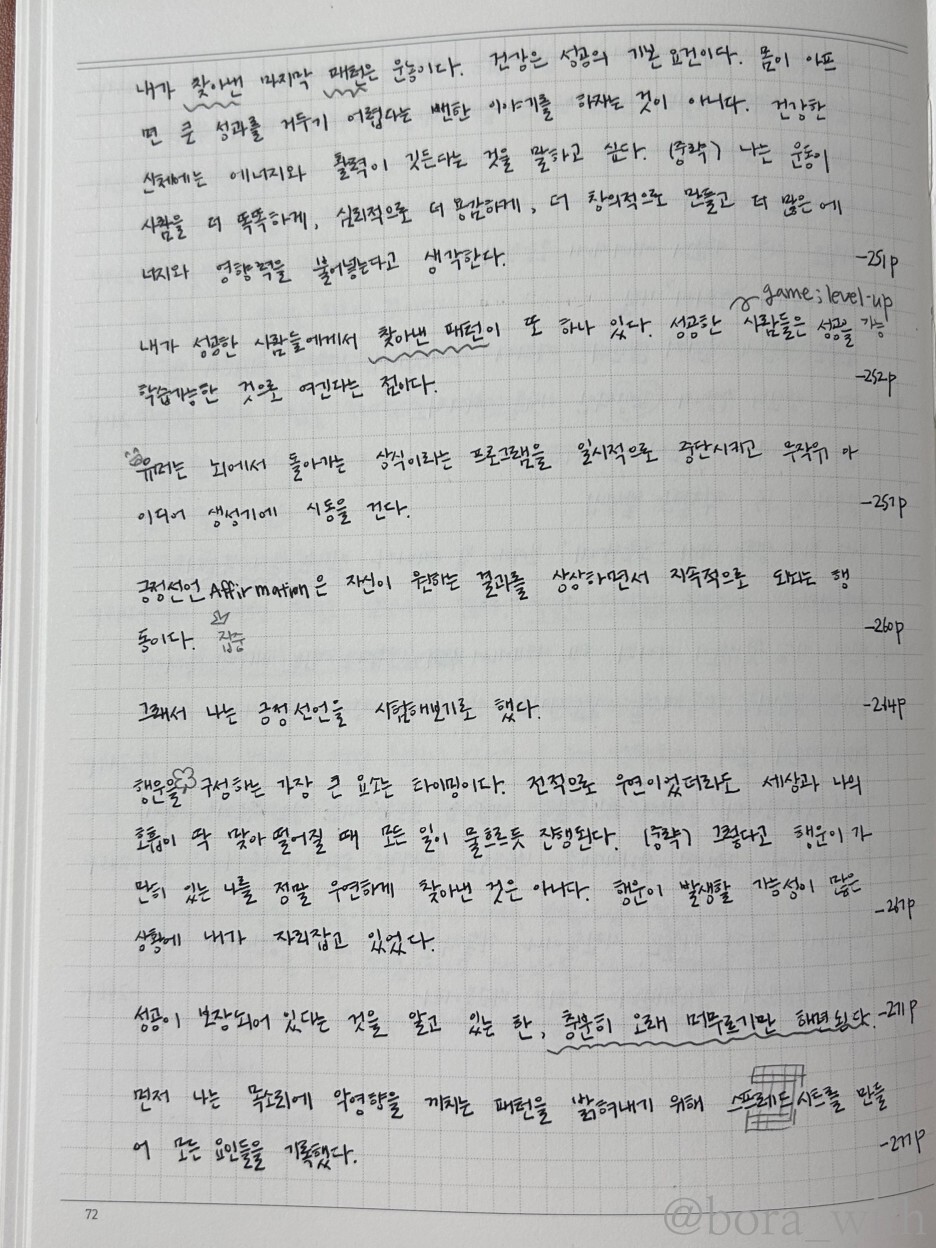 내가 찾아낸 마지막 패턴은 운동이다. 건강은 성공의 기본 요건이다. 몸이 아프
면 큰 성과를 거두기 어렵다는 뻔한 이야기를 하자는 것이 아니다. 건강한
신체에는 에너지와 활력이 깃든다는 것을 말하고 싶다. (중략) 나는 운동이
사람을 더 똑똑하게, 심리적으로 더 용감하게, 더 창의적으로 만들고 더 많은 에
너지와 영향력을 불어넣는다고 생각한다. -251p
game; level-up
내가 성공한 사람들에게서 찾아낸 패턴이 또 하나 있다. 성공한 사람들은 성공을 가능
학습가능한 것으로 여긴다는 점이다. -252p
유머는 뇌에서 돌아가는 상식이라는 프로그램을 일시적으로 중단시키고 무작위 아
이디어 생성기에 시동을 건다. -257p
긍정선언Affirmation은 자신이 원하는 결과를 상상하면서 지속적으로 되뇌는 행
동이다. 집중 -260p
그래서 나는 긍정선언을 시험해보기로 했다. -264p
행운을 구성하는 가장 큰 요소는 타이밍이다. 전적으로 우연이었더라도 세상과 나의
호흡이 딱 맞아 떨어질 때 모든 일이 물흐르듯 진행된다. (중략) 그렇다고 행운이 가
만히 있는 나를 정말 우연하게 찾아낸 것은 아니다. 행운이 발생할 가능성이 많은
상황에 내가 자리잡고 있었다. -267p
성공이 보장되어 있다는 것을 알고 있는 한, 충분히 오래 머무르기만 하면된다. -271p
먼저 나는 목소리에 악영향을 끼치는 패턴을 밝혀내기 위해 스프레드시트를 만들
어 모든 요인들을 기록했다. -277p
72